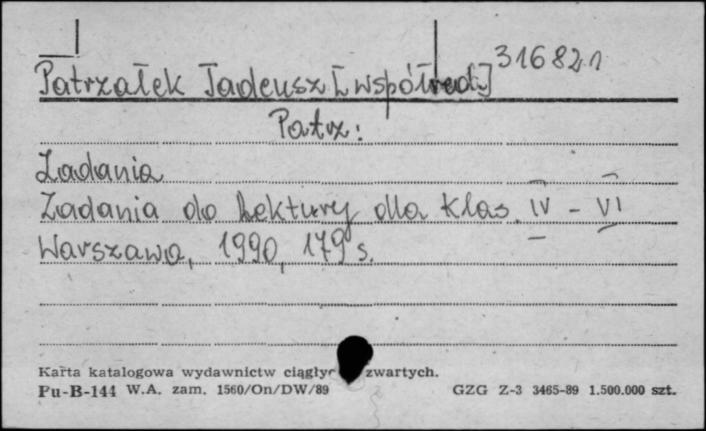 Patrzałek Tadeusz [współred.] 316821
Patrz:
Zadania
Zadania do lektury dla klas IV - VI
Warszawa, 1990, 179 s.
Karta katalogowa wydawnictw zwartych.
Pu-B-144 W.A. zam. 1560/On/DW/89 GZG Z-3 3465-89 1.500.000 szt.